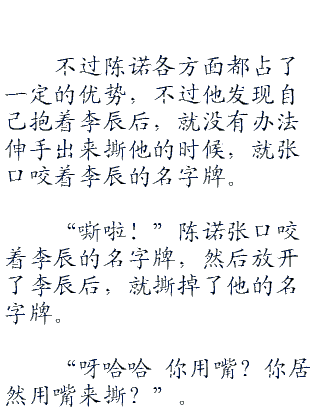 不过陈诺各方面都占了
一定的优势，不过他发现自
己抱着李辰后，就没有办法
伸手出来撕他的时候，就张
口咬着李辰的名字牌。
“嘶啦！”陈诺张口咬
着李辰的名字牌，然后放开
了李辰后，就撕掉了他的名
字牌。
“呀哈哈 你用嘴？你居
然用嘴来撕？”。